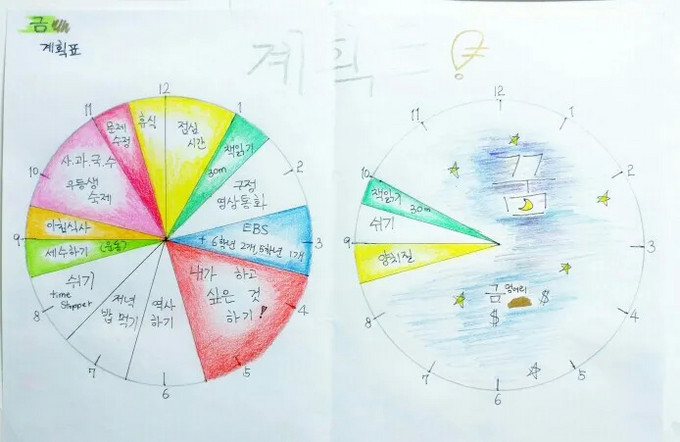 금
계획표
계획표!
12
1
2
3
4
5
6
7
8
9
10
11
휴식
점심
시간
책읽기
30m
구정
영상통화
EBS
+ 6학년 2개, 5학년 1개
내가 하고
싶은 것
하기!
역사
하기
저녁
밥 먹기
쉬기
time
stopper
세수하기
아침식사
사.과.국.수
우등생
숙제
문제
수정
12
1
2
3
4
5
6
7
8
9
10
11
책읽기
30m
쉬기
양치질
금 덩어리
$
$